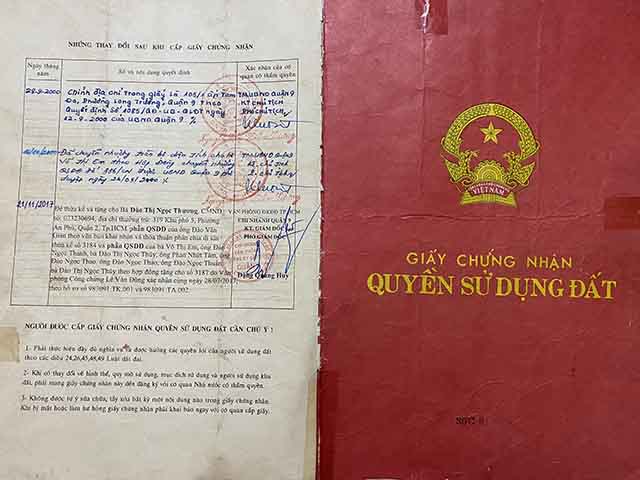 NHỮNG THAY ĐỔI SAU KHI CẤP GIẤY CHỨNG NHẬN
Ngày tháng năm
Số và nội dung quyết định
Xác nhận của cơ quan có thẩm quyền
28-9-2000
Chỉnh địa chỉ trong giấy là 105/1 ấp Tam
Đa, Phường Long Trường, Quận 9 Theo
Quyết định số 1085/QĐ-UB-QLĐT ngày
12.9-2000 của UBND Quận 9
TM.UBND QUẬN 9
KT CHỦ TỊCH
PHÓ CHỦ TỊCH
Đã chuyển nhượng
Võ Thị Em theo Hợp Đồng chuyển nhượng
QSDĐ Số
UBND Quận 9
duyệt ngày
TM.UBND Quận 9
21/11/2017
Để thừa kế và tặng cho Bà Đào Thị Ngọc Thương, CMND
số: 023230694, địa chỉ thường trú: 319 Khu phố 5, Phường
An Phú, Quận 2, Tp.HCM phần QSDĐ của ông Đào Văn
Gian theo văn bản khai nhận và thỏa thuận phân chia di sản
thừa kế số 3184 và phần QSDĐ của bà Võ Thị Em, ông Đào
Ngọc Thanh, bà Đào Thị Ngọc Thủy, ông Phan Nhật Tâm, ông
Đào Ngọc Thao, ông Đào Ngọc Thảo, ông Đào Ngọc Thuần,
bà Đào Thị Ngọc Thúy theo hợp đồng tặng cho số 3187 do Văn
phòng Công chứng Lê Văn Dũng xác nhận cùng ngày 28/07/2017;
theo hồ sơ số 983091.TK.001 và 983091.TA.002.
VĂN PHÒNG ĐKĐĐ TP.HCM
CHI NHÁNH QUẬN 9
KT. GIÁM ĐỐC
PHÓ GIÁM ĐỐC
Đặng Quang Huy
NGƯỜI ĐƯỢC CẤP GIẤY CHỨNG NHẬN QUYỀN SỬ DỤNG ĐẤT CẦN CHÚ Ý !
1- Phải thực hiện đầy đủ nghĩa vụ và được hưởng các quyền lợi của người sử dụng đất
theo các điều 24,26,45,48,49 Luật đất đai.
2- Khi có thay đổi về hình thể, quy mô sử dụng, mục đích sử dụng và người sử dụng khu
đất, phải mang giấy chứng nhận này đến đăng ký với cơ quan Nhà nước có thẩm quyền.
3- Không được tự ý sửa chữa, tẩy xóa bất kỳ một nội dung nào trong giấy chứng nhận.
Khi bị mất hoặc làm hư hỏng giấy chứng nhận phải khai báo ngay với cơ quan cấp giấy.
VIỆT NAM
GIẤY CHỨNG NHẬN
QUYỀN SỬ DỤNG ĐẤT